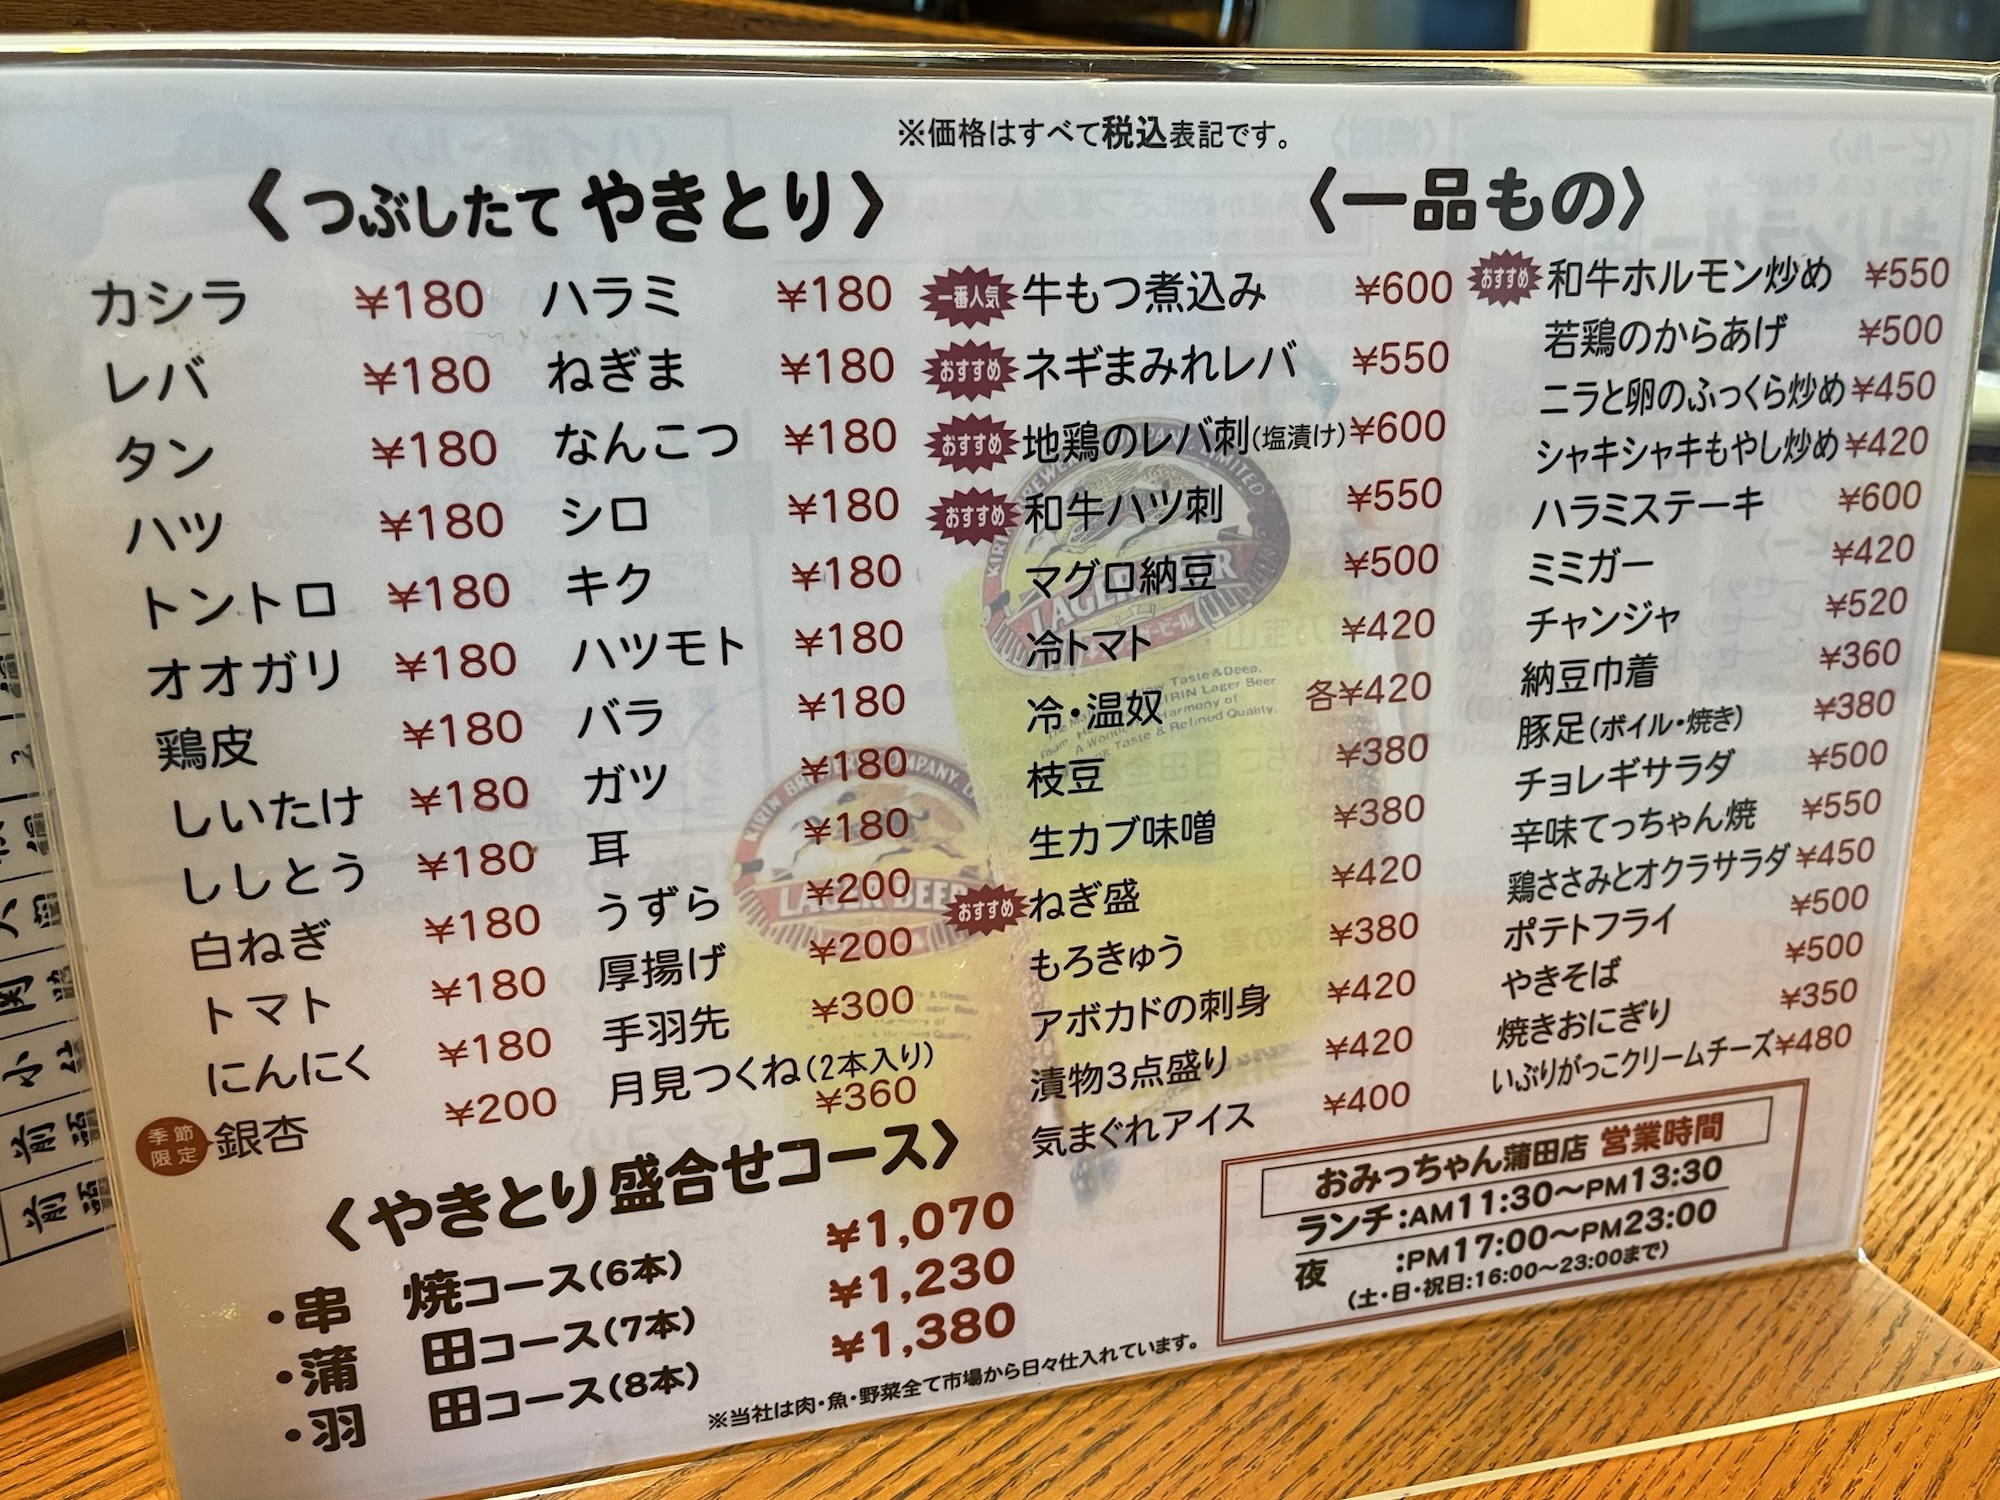 ※価格はすべて税込表記です。
〈つぶしたて やきとり〉
カシラ ¥180
レバ ¥180
タン ¥180
ハツ ¥180
トントロ ¥180
オオガリ ¥180
鶏皮 ¥180
しいたけ ¥180
ししとう ¥180
白ねぎ ¥180
トマト ¥180
にんにく ¥180
季節限定 銀杏 ¥200
ハラミ ¥180
ねぎま ¥180
なんこつ ¥180
シロ ¥180
キク ¥180
ハツモト ¥180
バラ ¥180
ガツ ¥180
耳 ¥180
うずら ¥200
厚揚げ ¥200
手羽先 ¥300
月見つくね(2本入り)
¥360
〈やきとり盛合せコース〉
・串 焼コース(6本) ¥1,070
・蒲 田コース(7本) ¥1,230
・羽 田コース(8本) ¥1,380
〈一品もの〉
一番人気 牛もつ煮込み ¥600
おすすめ ネギまみれレバ ¥550
おすすめ 地鶏のレバ刺(塩漬け) ¥600
おすすめ 和牛ハツ刺 ¥550
マグロ納豆 ¥500
冷トマト ¥420
冷・温奴 各¥420
枝豆 ¥380
生カブ味噌 ¥380
おすすめ ねぎ盛 ¥420
もろきゅう ¥380
アボカドの刺身 ¥420
漬物3点盛り ¥420
気まぐれアイス ¥400
おすすめ 和牛ホルモン炒め ¥550
若鶏のからあげ ¥500
ニラと卵のふっくら炒め ¥450
シャキシャキもやし炒め ¥420
ハラミステーキ ¥600
ミミガー ¥420
チャンジャ ¥520
納豆巾着 ¥360
豚足(ボイル・焼き) ¥380
チョレギサラダ ¥500
辛味てっちゃん焼 ¥550
鶏ささみとオクラサラダ ¥450
ポテトフライ ¥500
やきそば ¥500
焼きおにぎり ¥350
いぶりがっこクリームチーズ ¥480
おみっちゃん蒲田店 営業時間
ランチ:AM11:30〜PM13:30
夜 :PM17:00〜PM23:00
(土・日・祝日:16:00〜23:00まで)
※当社は肉・魚・野菜全て市場から日々仕入れています。
LAGER BEER